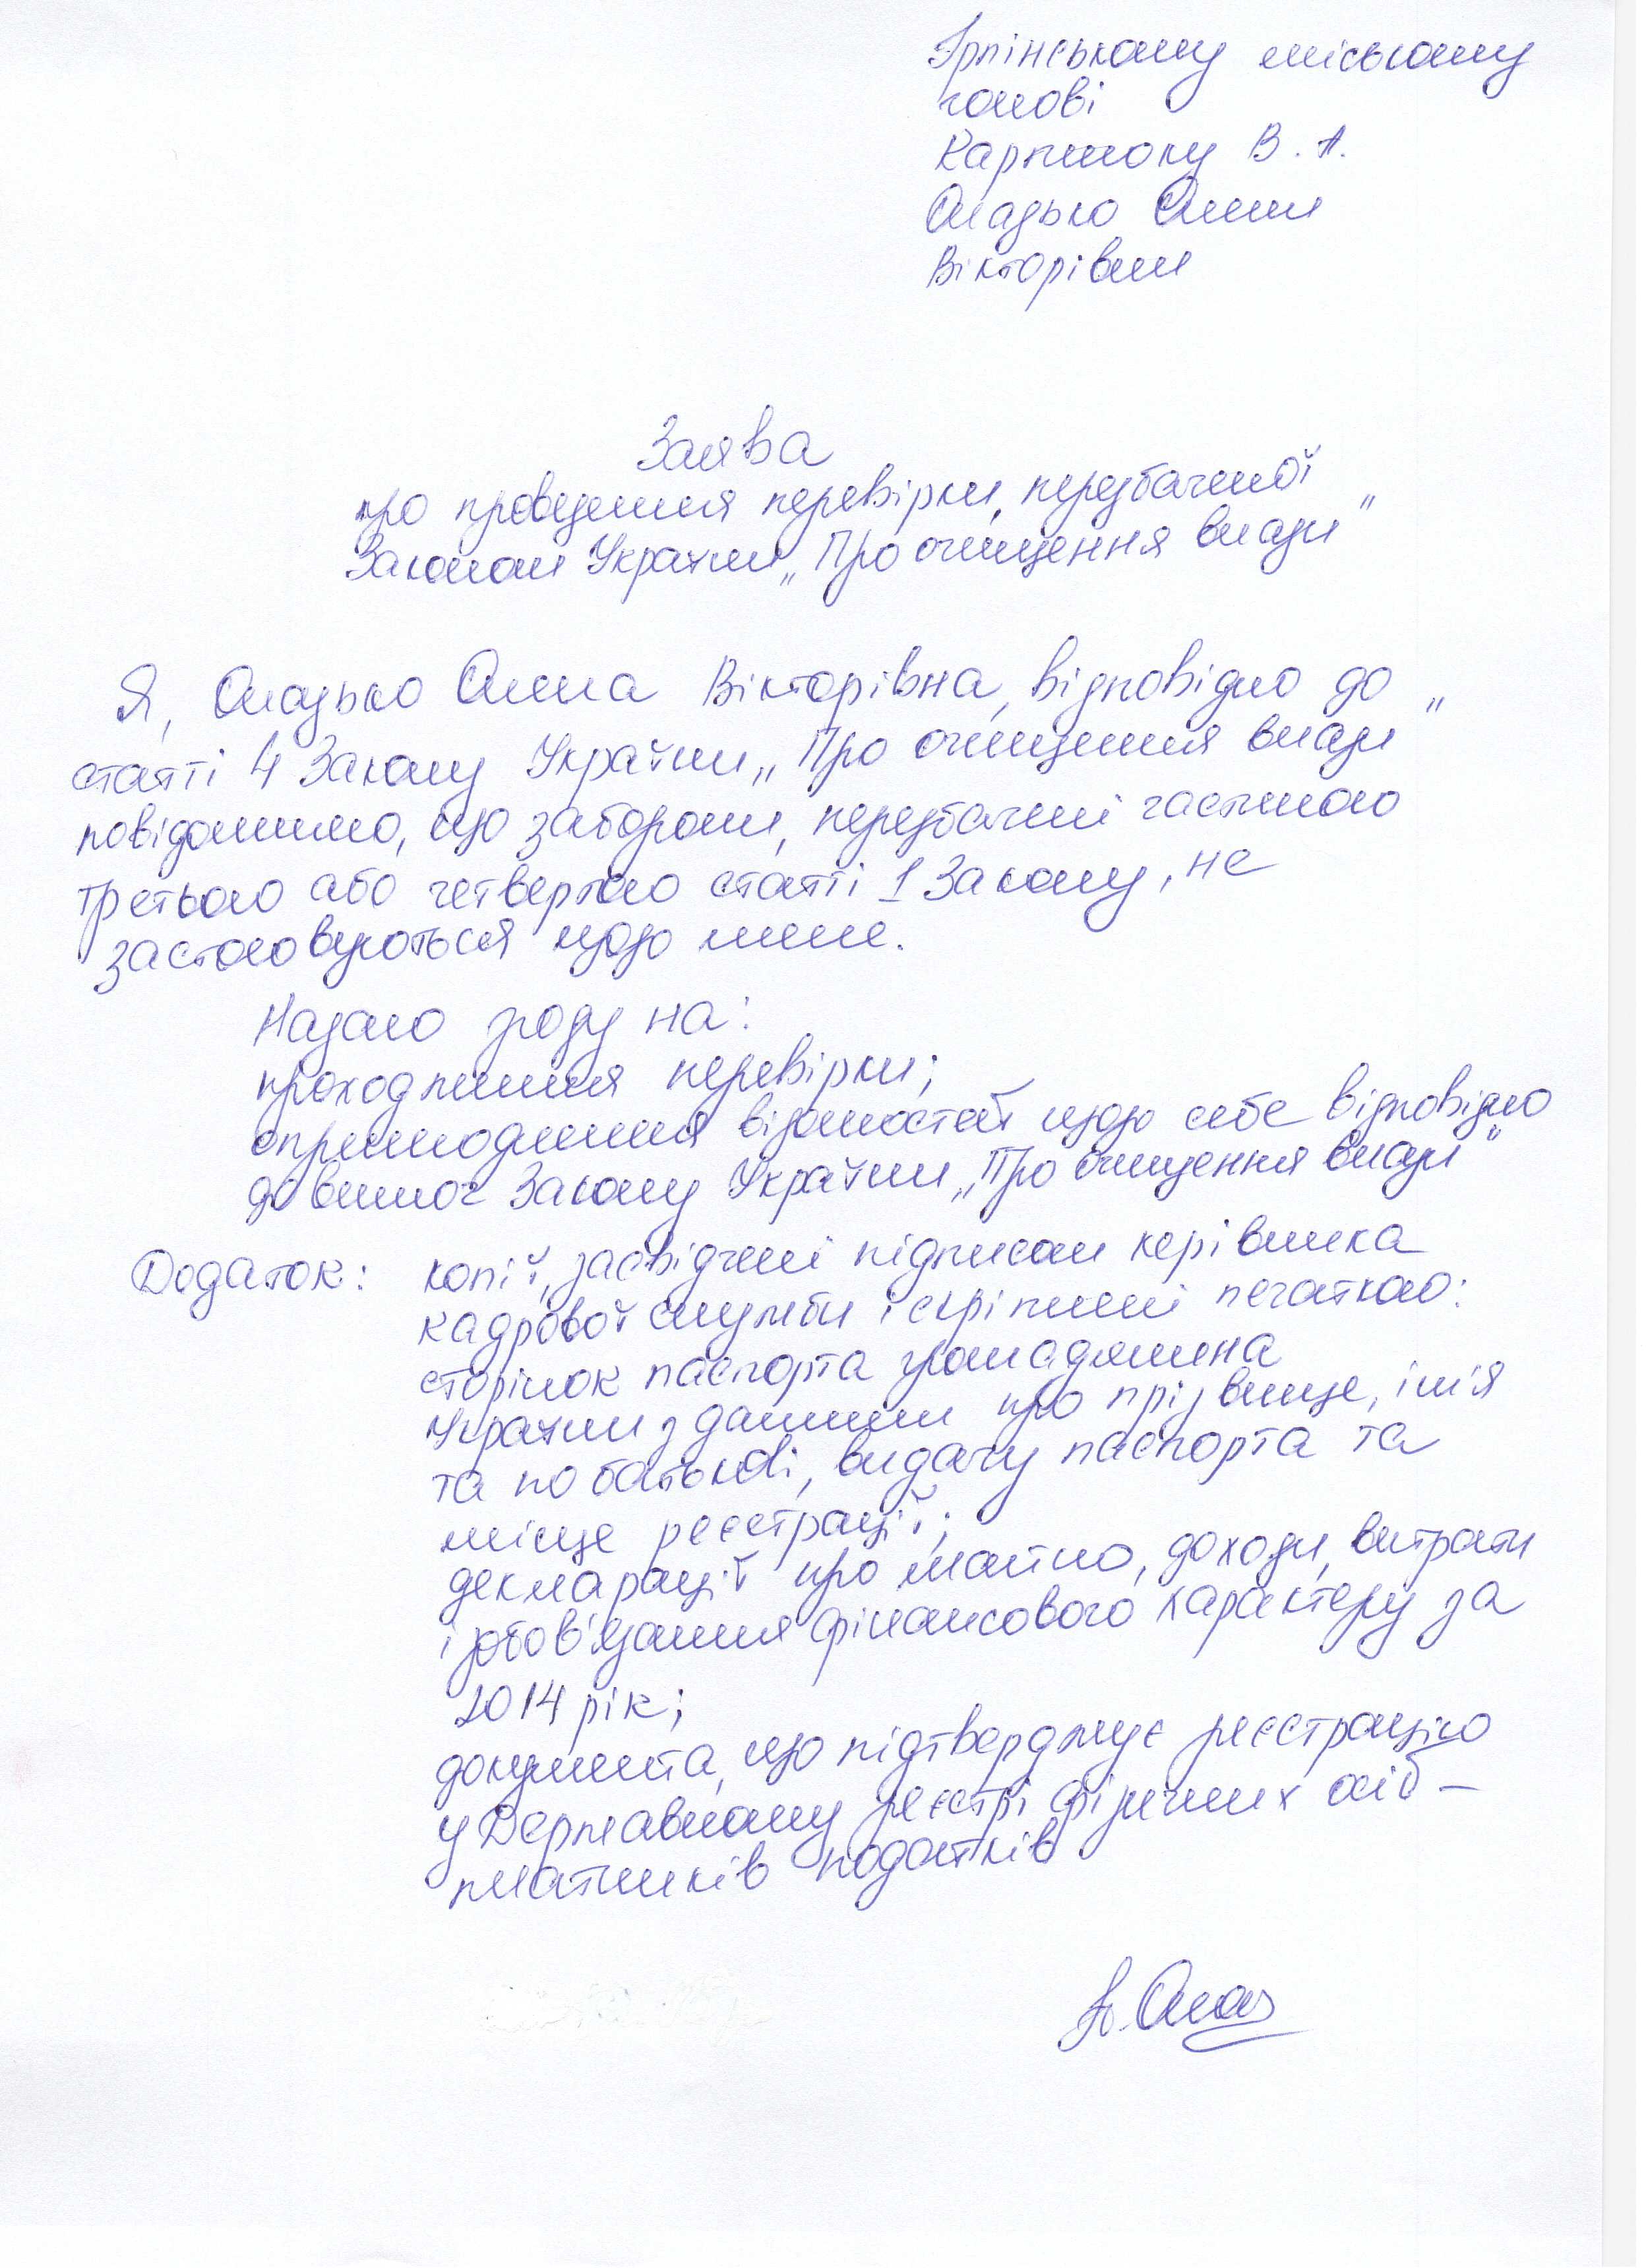 Ірпінському міському
голові
Карплюку В.А.
Оладько Анни
Вікторівни
Заява
про проведення перевірки, передбаченої
Законом України „Про очищення влади"
Я, Оладько Анна Вікторівна, відповідно до
статті 4 Закону України „Про очищення влади"
повідомляю, що заборони, передбачені частиною
третьою або четвертою статті 1 Закону, не
застосовуються щодо мене.
Надаю згоду на:
проходження перевірки;
оприлюднення відомостей щодо себе відповідно
до вимог Закону України „Про очищення влади"
Додаток: копії, засвідчені підписом керівника
кадрової служби і скріплені печаткою:
сторінок паспорта громадянина
України з даними про прізвище, ім'я
та по батькові, видачу паспорта та
місце реєстрації;
декларації про майно, доходи, витрати
і зобов'язання фінансового характеру за
2014 рік;
документа, що підтверджує реєстрацію
у Державному реєстрі фізичних осіб –
платників податків